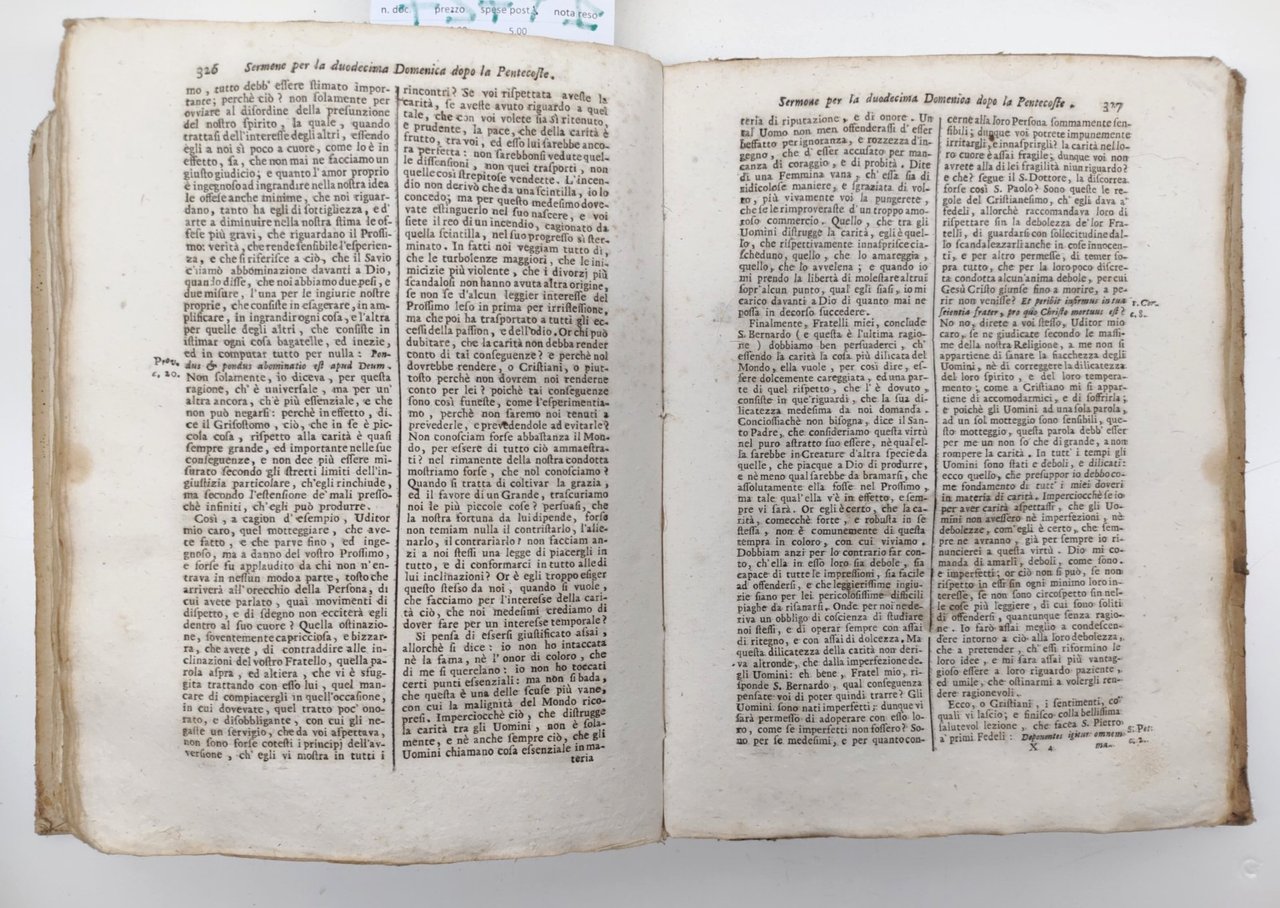 n. doc. prezzo spese post. nota reso
5,00
326 Sermone per la duodecima Domenica dopo la Pentecoſte.
mo, tutto debb' eſſere ſtimato impor-
tante; perchè ciò? non ſolamente per
ovviare al diſordine della preſunzione
del noſtro ſpirito, la quale, quando
trattaſi dell'intereſſe degli altri, eſſendo
egli a noi sì poco a cuore, come lo è in
effetto, fa, che non mai ne facciamo un
giuſto giudicio; e quanto l'amor proprio
è ingegnoſo ad ingrandire nella noſtra idea
le offeſe anche minime, che noi riguar-
dano, tanto ha egli di ſottigliezza, ed'
arte a diminuire nella noſtra ſtima le of-
feſe più gravi, che riguardano il Proſſi-
mo: verità, che rende ſenſibile l'eſperien-
za, e che ſi riferiſce a ciò, che il Savio
chiamò abbòminazione davanti a Dio,
quando diſſe, che noi abbiamo due peſi, e
due miſure, l'una per le ingiurie noſtre
proprie, che conſiſte in eſagerare, in am-
plificare, in ingrandir ogni coſa, e l'altra
per quelle degli altri, che conſiſte in
iſtimar ogni coſa bagatelle, ed inezie,
ed in computar tutto per nulla: Pon-
dus & pondus abominatio eſt apud Deum.
Prov.
c. 20.
Non ſolamente, io diceva, per queſta
ragione, ch' è univerſale, ma per un'
altra ancora, ch'è più eſſenziale, e che
non può negarſi: perchè in effetto, di-
ce il Griſoſtomo, ciò, che in ſe è pic-
cola coſa, riſpetto alla carità è quaſi
ſempre grande, ed importante nelle ſue
conſeguenze, e non dee più eſſere mi-
ſurato ſecondo gli ſtretti limiti dell'in-
giuſtizia particolare, ch'egli rinchiude,
ma ſecondo l'eſtenſione de' mali preſſo-
chè infiniti, ch'egli può produrre.
Così, a cagion d'eſempio, Uditor
mio caro, quel motteggiare, che ave-
te fatto, e che parve fino, ed inge-
gnoſo, ma a danno del voſtro Proſſimo,
e forſe fu applaudito da chi non n'en-
trava in neſſun modo a parte, toſto che
arriverà all'orecchio della Perſona, di
cui avete parlato, quai movimenti di
diſpetto, e di ſdegno non ecciterà egli
dentro al ſuo cuore? Quella oſtinazio-
ne, ſoventemente capricciosa, e bizzar-
ra, che avete, di contraddire alle in-
clinazioni del voſtro Fratello, quella pa-
rola aſpra, ed altiera, che vi è sfug-
gita trattando con eſſo lui, quel man-
care di compiacergli in quell'occaſione,
in cui dovevate, quel tratto poc' ono-
rato, e diſobbligante, con cui gli ne-
gaſte un ſervigio, che da voi aſpettava,
non ſono forſe coteſti i principj dell'av-
verſione, ch' egli vi moſtra in tutti i
rincontri? Se voi riſpettata aveſte la
carità, ſe aveſte avuto riguardo a quel
tale, che con voi volete ſia sì ritenuto,
e prudente, la pace, che della carità è
frutto, tra voi, ed eſſo lui ſarebbe anco-
ra perfetta: non ſarebbonſi vedute quel-
le diſſenſioni, non quei traſporti, non
quelle così ſtrepitoſe vendette. L'incen-
dio non derivò che da una ſcintilla, io lo
concedo; ma per queſto medeſimo dove-
vate eſtinguerlo nel ſuo naſcere, e voi
ſiete il reo di un incendio, cagionato da
quella ſcintilla, nel ſuo progreſſo sì ſter-
minato. In fatti noi veggiam tutto dì,
che le turbolenze maggiori, che le ini-
micizie più violente, che i divorzj più
ſcandaloſi non hanno avuta altra origine,
ſe non ſe d'alcun leggier intereſſe del
Proſſimo leſo in prima per irrifleſſione,
ma che poi ha traſportato a tutti gli ec-
ceſſi della paſſion, e dell'odio. Or chi può
dubitare, che la carità non debba render
conto di tai conſeguenze? e perchè nol
dovrebbe rendere, o Criſtiani, o piut-
toſto perchè non dovrem noi renderne
conto per lei? poichè tai conſeguenze
ſono così funeſte, come l'eſperimentia-
mo, perchè non ſaremo noi tenuti a
prevederle, e prevedendole ad evitarle?
Non conoſciam forſe abbaſtanza il Mon-
do, per eſſere di tutto ciò ammaeſtra-
ti? nel rimanente della noſtra condotta
moſtriamo forſe, che nol conoſciamo?
Quando ſi tratta di coltivar la grazia,
ed il favore di un Grande, traſcuriamo
noi le più piccole coſe? perſuaſi, che
la noſtra fortuna da lui dipende, forſo
non temiam nulla il contriſtarlo, l'alie-
narlo, il contrariarlo? non facciam an-
zi a noi ſteſſi una legge di piacergli in
tutto, e di conformarci in tutto alle di
lui inclinazioni? Or è egli troppo eſiger
queſto ſteſſo da noi, quando ſi vuole,
che facciamo per l'intereſſe della cari-
tà ciò, che noi medeſimi crediamo di
dover fare per un intereſſe temporale?
Si penſa di eſſerſi giuſtificato aſſai,
allorchè ſi dice: io non ho intaccata
nè la fama, nè l'onor di coloro, che
di me ſi querelano: io non ho toccati
certi punti eſſenziali: ma non ſi bada,
che queſta è una delle ſcuſe più vane,
con cui la malignità del Mondo rico-
preſi. Imperciocchè ciò, che diſtrugge
la carità tra gli Uomini, non è ſola-
mente, e nè anche ſempre ciò, che gli
Uomini chiamano coſa eſſenziale in ma-
teria
Sermone per la duodecima Domenica dopo la Pentecoſte. 327
teria di riputazione, e di onore. Un
tal Uomo non men offenderaſſi d' eſſer
beffatto per ignoranza, e rozzezza d'in-
gegno, che d' eſſer accuſato per man-
canza di coraggio, e di probità. Dite
di una Femmina vana, ch' eſſa ſia di
ridicoloſe maniere, e ſgraziata di vol-
to, più vivamente voi la pungerete,
che ſe le rimproveraſte d' un troppo amo-
roſo commercio. Quello, che tra gli
Uomini diſtrugge la carità, egli è quel-
lo, che riſpettivamente innaſpriſce cia-
ſcheduno, quello, che lo amareggia,
quello, che lo avvelena; e quando io
mi prendo la libertà di moleſtare altrui
ſopr'alcun punto, qual egli ſiaſi, io mi
carico davanti a Dio di quanto mai ne
poſſa in decorſo ſuccedere.
Finalmente, Fratelli miei, conclude
S. Bernardo ( e queſta è l'ultima ragio-
ne ) dobbiamo ben perſuaderci, ch'
eſſendo la carità la coſa più dilicata del
Mondo, ella vuole, per così dire, eſ-
ſere dolcemente careggiata, ed una par-
te di quel riſpetto, che l' è dovuto,
conſiſte in que'riguardi, che la ſua di-
licatezza medeſima da noi domanda.
Concioſſiachè non biſogna, dice il San-
to Padre, che conſideriamo queſta virtù
nel puro aſtratto ſuo eſſere, nè qual el-
la ſarebbe in Creature d'altra ſpecie da
quelle, che piacque a Dio di produrre,
e nè meno qual ſarebbe da bramarſi, che
aſſolutamente ella foſſe nel Proſſimo,
ma tale qual'ella v'è in effetto, e ſem-
pre vi ſarà. Or egli è certo, che la ca-
rità, comecchè forte, e robuſta in ſe
ſteſſa, non è comunemente di queſta
tempra in coloro, con cui viviamo.
Dobbiam anzi per lo contrario far con-
to, ch'ella in eſſo loro ſia debole, ſia
capace di tutte le impreſſioni, ſia facile
ad offenderſi, e che leggieriſſime ingiu-
rie ſiano per lei pericoloſiſſime difficili
piaghe da riſanarſi. Onde per noi ne de-
riva un obbligo di coſcienza di ſtudiare
noi ſteſſi, e di operar ſempre con aſſai
di ritegno, e con aſſai di dolcezza. Ma
queſta dilicatezza della carità non deri-
va altronde, che dalla imperfezione de-
gli Uomini: eh bene, Fratel mio, ri-
ſponde S. Bernardo, qual conſeguenza
penſate voi di poter quindi trarre? Gli
Uomini ſono nati imperfetti; dunque vi
ſarà permeſſo di adoperare con eſſo lo-
ro, come ſe imperfetti non foſſero? So-
no per ſe medeſimi, e per quanto con-
cerne alla loro Perſona ſommamente ſen-
ſibili; dunque voi potrete impunemente
irritargli, e innaſprirgli? la carità nel lo-
ro cuore è aſſai fragile; dunque voi non
avrete alla di lei fragilità niun riguardo?
e che? ſegue il S. Dottore, la diſcorrea
forſe così S. Paolo? Sono queſte le re-
gole del Criſtianeſimo, ch' egli dava a'
fedeli, allorchè raccomandava loro di
riſpettare fin la debolezza de' lor Fra-
telli, di guardarſi con ſollecitudine dal-
lo ſcandalezzarli anche in coſe innocen-
ti, e per altro permeſſe, di temer ſo-
pra tutto, che per la loro poco diſcre-
ta condotta alcun'anima debole, per cui
Gesù Criſto giunſe fino a morire, a pe-
rir non veniſſe? Et peribit infirmus in tua
ſcientia frater, pro quo Chriſtus mortuus eſt?
1. Cor.
c. 8.
No no, direte a voi ſteſſo, Uditor mio
caro, ſe ne giudicate ſecondo le maſſi-
me della noſtra Religione, a me non ſi
appartiene di ſanare la fiacchezza degli
Uomini, nè di correggere la dilicatezza
del loro ſpirito, e del loro tempera-
mento; come a Criſtiano mi ſi appar-
tiene di accomodarmici, e di ſoffrirla;
e poichè gli Uomini ad una ſola parola,
ad un ſol motteggio ſono ſenſibili, que-
ſto motteggio, queſta parola debb' eſſer
per me un non ſo che di grande, a non
rompere la carità. In tutt' i tempi gli
Uomini ſono ſtati e deboli, e dilicati:
ecco quello, che preſuppor io debbo co-
me fondamento di tutt' i miei doveri
in materia di carità. Imperciocchè ſe io
per aver carità aſpettaſſi, che gli Uo-
mini non aveſſero nè imperfezioni, nè
debolezze, com'egli è certo, che ſem-
pre ne avranno, già per ſempre io ri-
nuncierei a queſta virtù. Dio mi co-
manda di amarli, deboli, come ſono,
e imperfetti; or ciò non ſi può, ſe non
riſpetto in eſſi fin ogni minimo loro in-
tereſſe, ſe non ſono circoſpetto fin nel-
le coſe più leggiere, di cui ſono ſoliti
di offenderſi, quantunque ſenza ragio-
ne. Io farò aſſai meglio a condeſcen-
dere intorno a ciò alla loro debolezza,
che a pretender, ch' eſſi riformino le
loro idee, e mi ſarà aſſai più vantag-
gioſo eſſere a loro riguardo paziente,
ed umile, che oſtinarmi a volergli ren-
dere ragionevoli.
Ecco, o Criſtiani, i ſentimenti, co'
quali vi laſcio; e finiſco colla belliſſima
ſalutevol lezione, che facea S. Pietro
a' primi Fedeli: Deponentes igitur omnem
S. Pet.
c. 2.
X 4 ma-